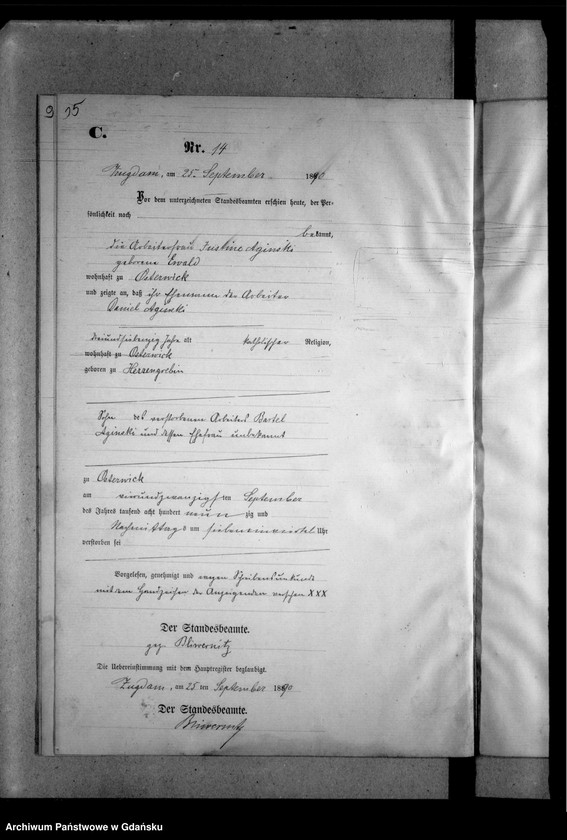 9
35
C.
Nr. 14
Zugdam, am 25. September 1890
Vor dem unterzeichneten Standesbeamten erschien heute, der Per-
sönlichkeit nach
bekannt,
die Arbeiterfrau Justine Aginski
geborene Ewald
wohnhaft zu Osterwick
und zeigte an, daß ihr Ehemann der Arbeiter
Daniel Aginski
dreiundsiebenzig Jahr alt katholischer Religion,
wohnhaft zu Osterwick
geboren zu Herrengrebin
Sohn des verstorbenen Arbeiters Bartel
Aginski und dessen Ehefrau unbekannt
zu Osterwick
am vierundzwanzigsten September
des Jahres tausend acht hundert neunzig und
Nachmittags um sieben einviertel Uhr
verstorben sei
Vorgelesen, genehmigt und wegen Schreibensunkunde
mit dem Handzeichen der Anzeigenden versehen XXX
Der Standesbeamte.
gez.
Die Uebereinstimmung mit dem Hauptregister beglaubigt.
Zugdam, am 25 ten September 1890
Der Standesbeamte.
Archiwum Państwowe w Gdańsku